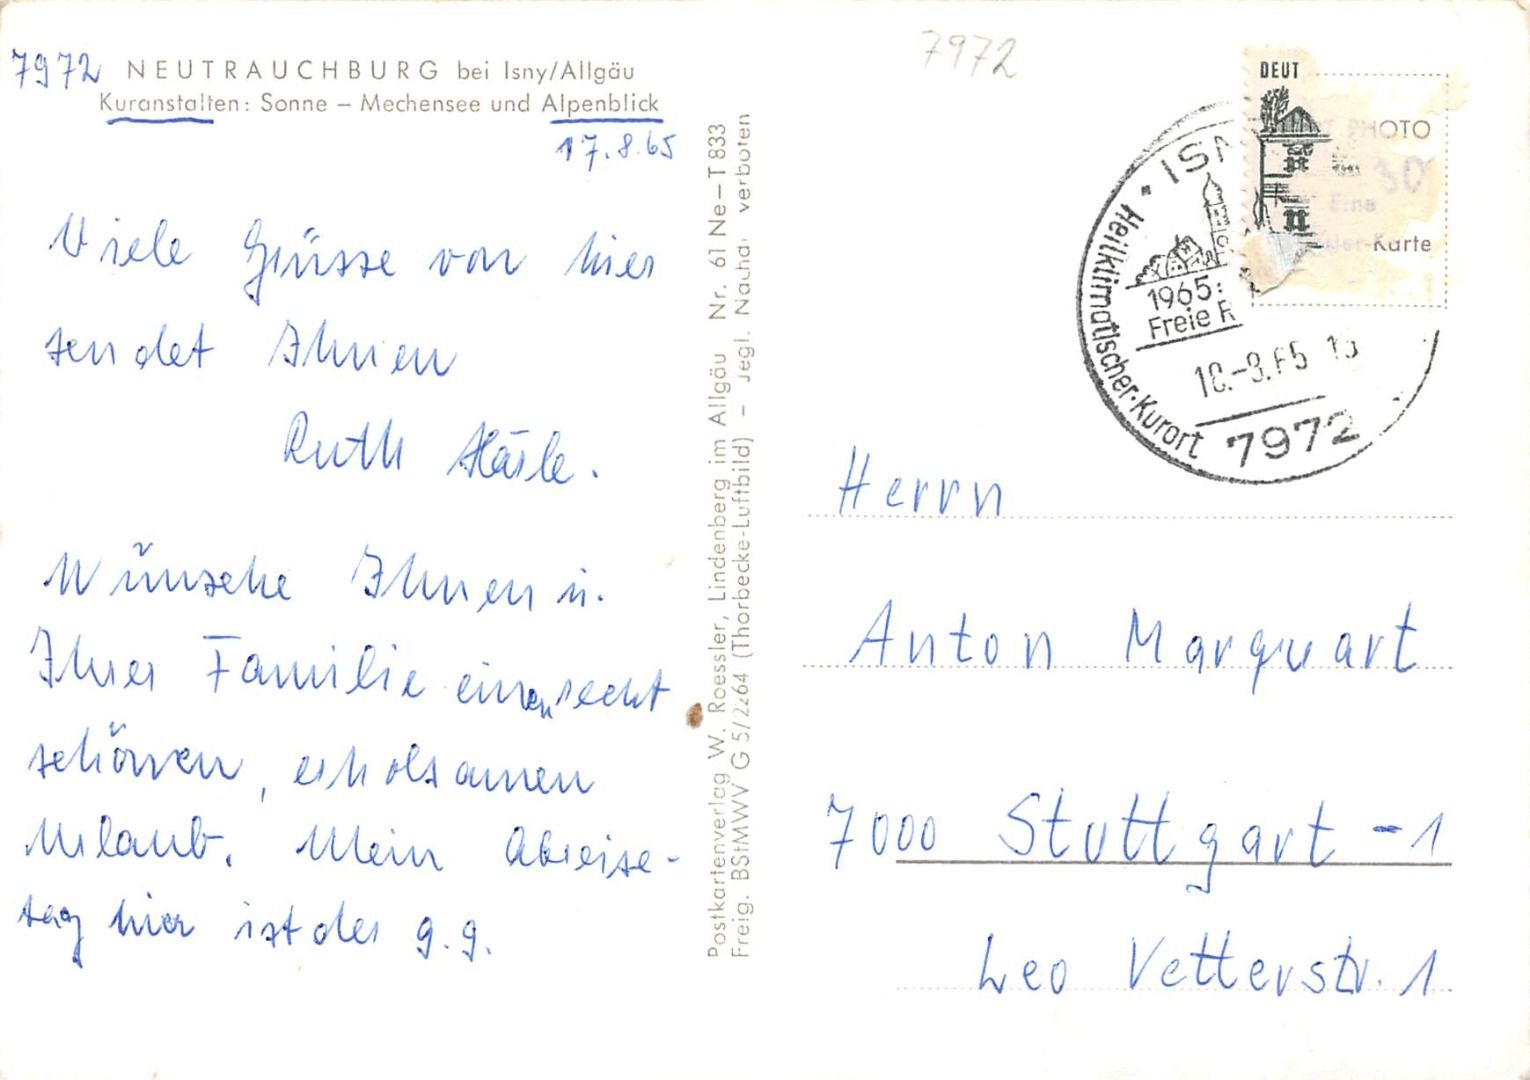 7972 NEUTRAUCHBURG bei Isny/Allgäu
Kuranstalten: Sonne – Mechensee und Alpenblick
17.8.65
Viele Grüsse von hier
sendet Ihnen
Ruth Häsle.
Wünsche Ihnen u.
Ihrer Familie einen recht
schönen, erholsamen
Urlaub. Mein Abreise-
tag hier ist der 9.9.
Postkartenverlag W. Roessler, Lindenberg im Allgäu Nr. 61 Ne–T833
Freig. BStMWV G 5/2264 (Thorbecke-Luftbild) – Jegl. Nachdr. verboten
7972
DEUT
PHOTO
30
Eine
-Karte
ISN
Heilklimatischer-Kurort
1965:
Freie R
7972
Herrn
Anton Marquart
7000 Stuttgart -1
Leo Vetterstr. 1